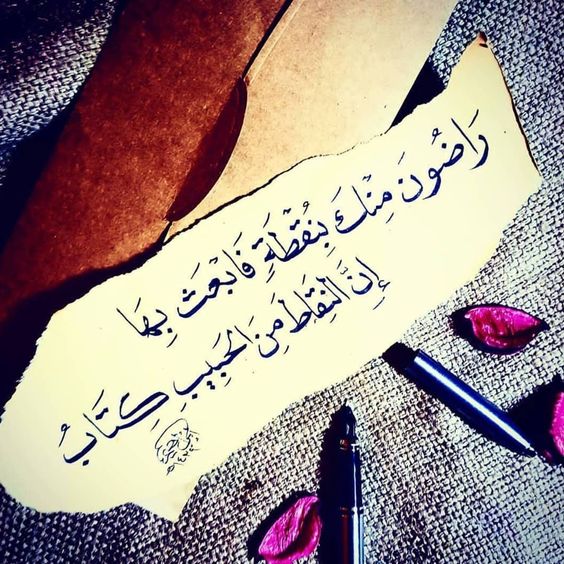 رَاضُونَ مِنْكَ بِنُقْطَةٍ فَابْعَثْ بِهَا
إِنَّ النِّقَاطَ مِنَ الحَبِيبِ كِتَابُ